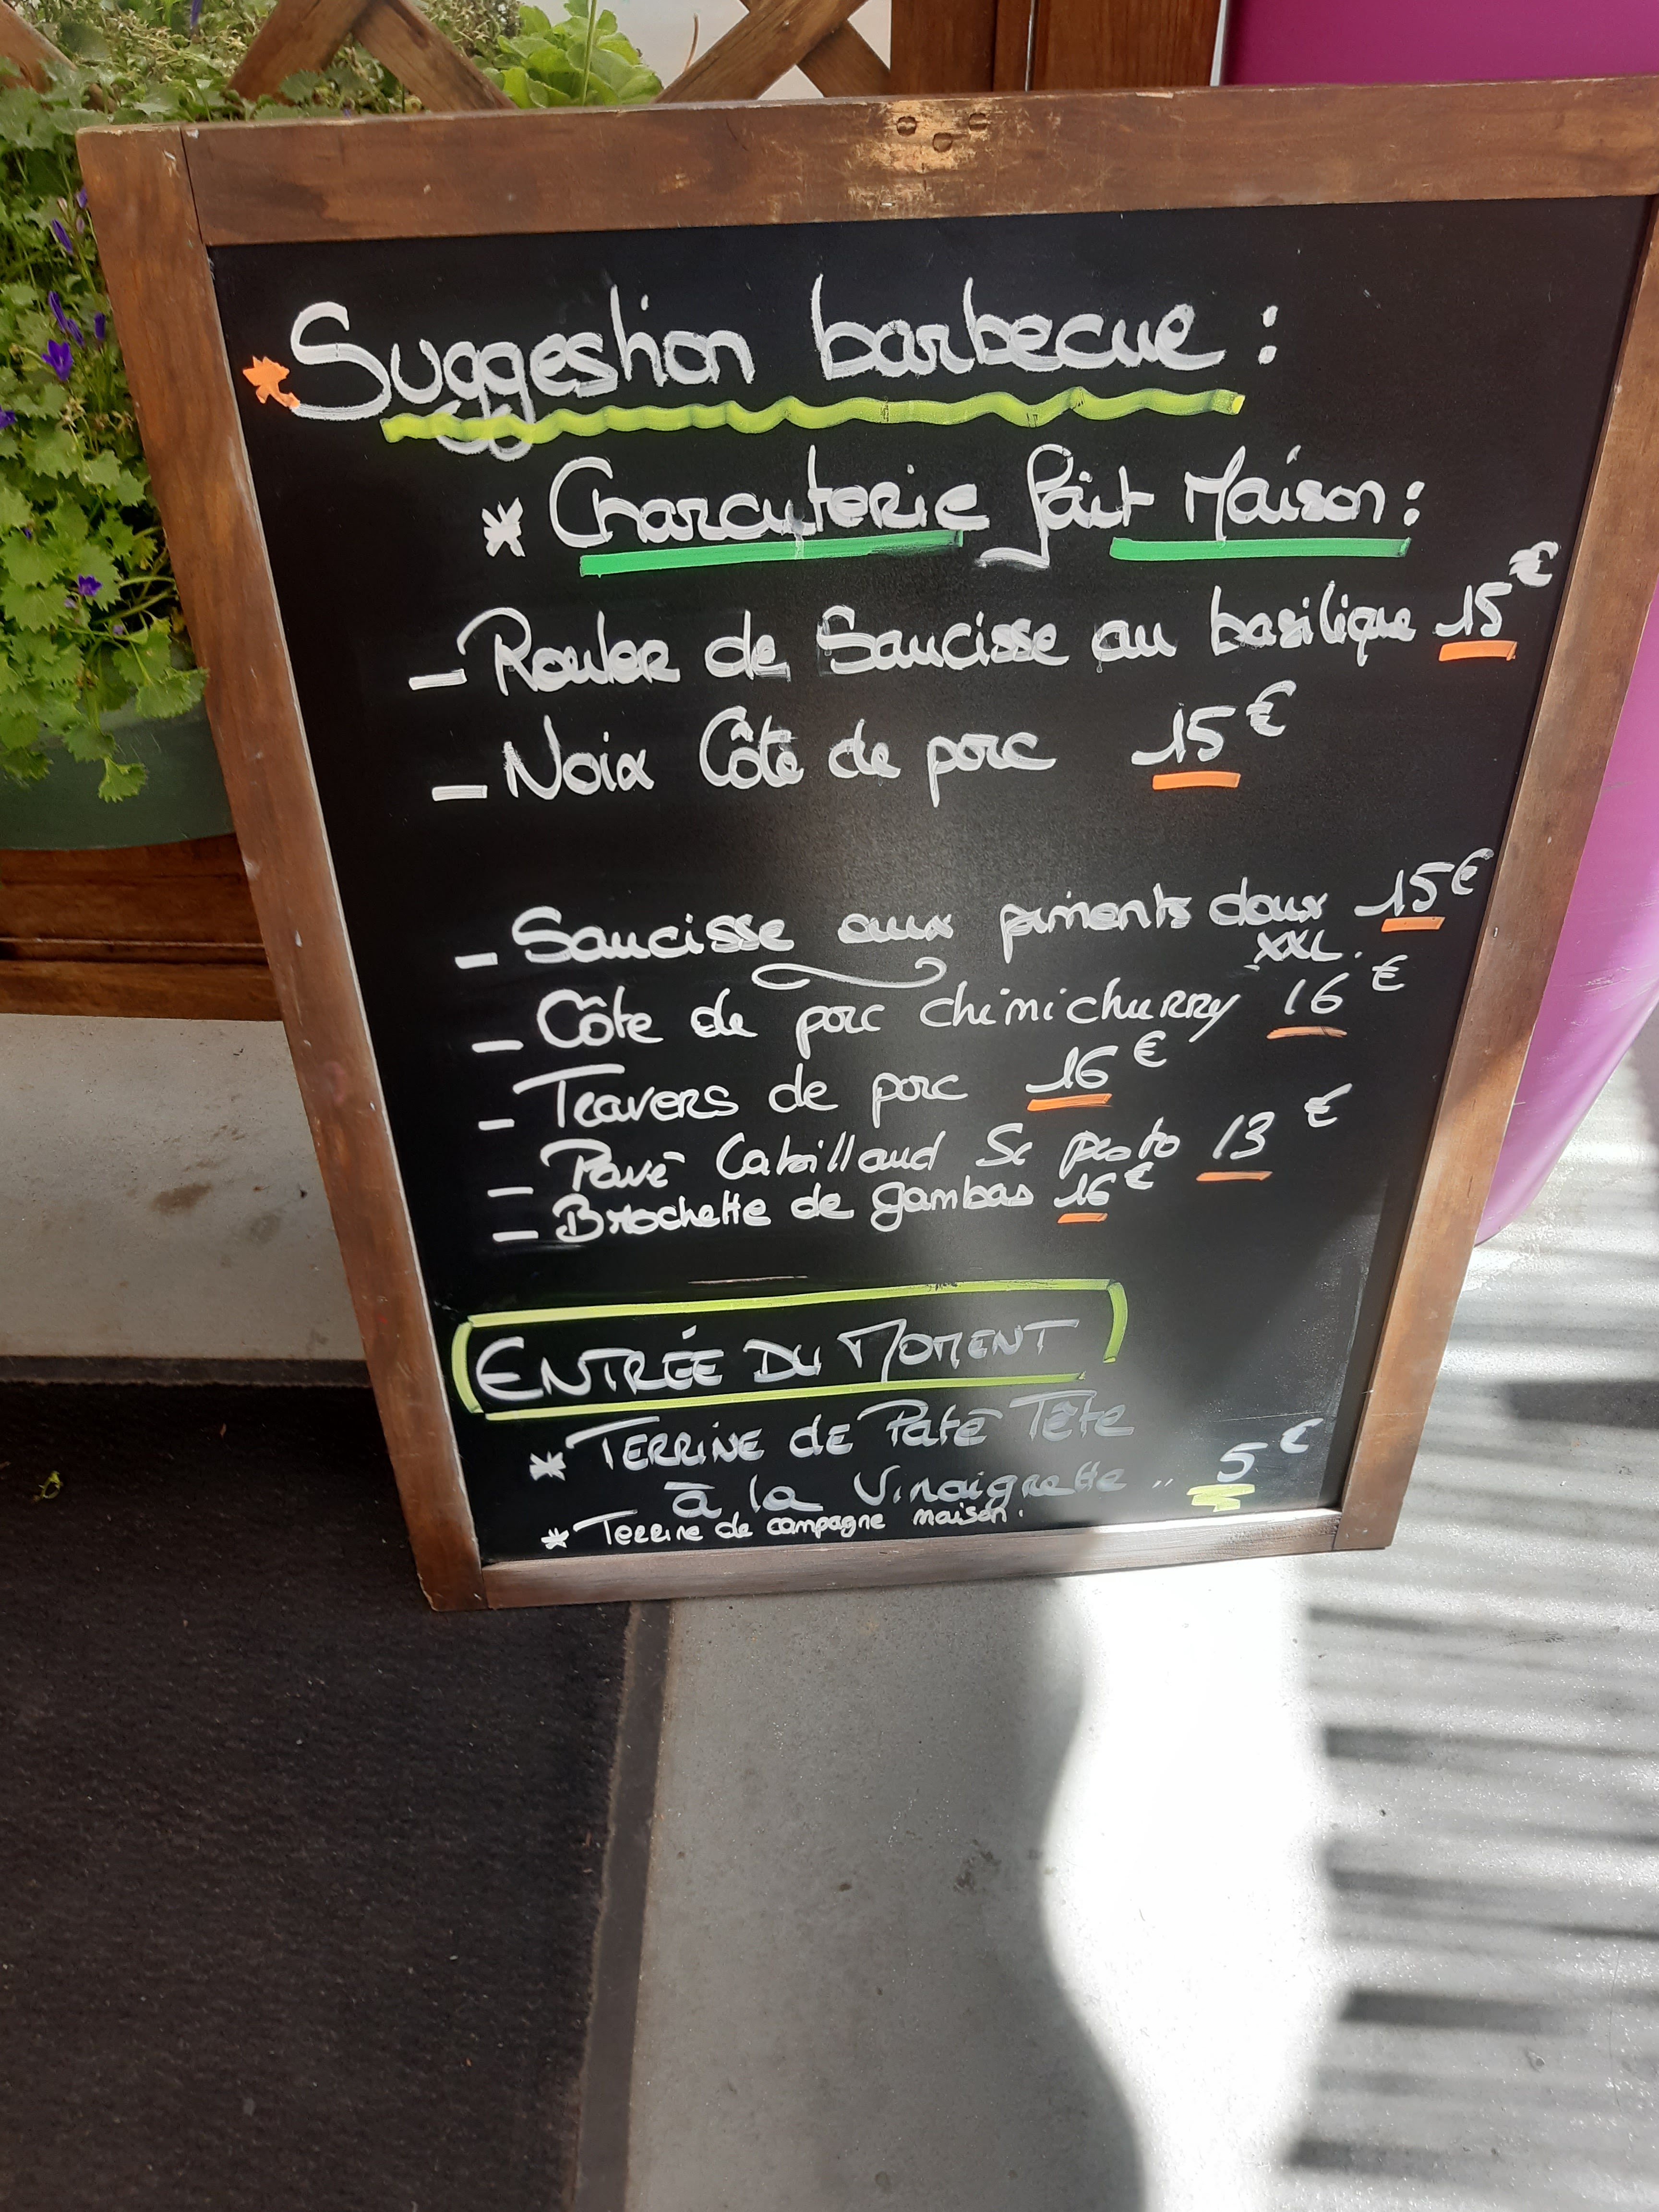 Suggestion barbecue :
* Charcuterie fait Maison :
- Rouler de Saucisse au basilique 15€
- Noix Côte de porc 15€
- Saucisse aux piments doux 15€
XXL.
- Côte de porc chimichurry 16€
- Travers de porc 16€
- Pavé Cabillaud Sc pesto 13€
- Brochette de gambas 16€
ENTRÉE DU MOMENT
* TERRINE de Paté Tête
à la Vinaigrette .. 5€
* Terrine de campagne maison.